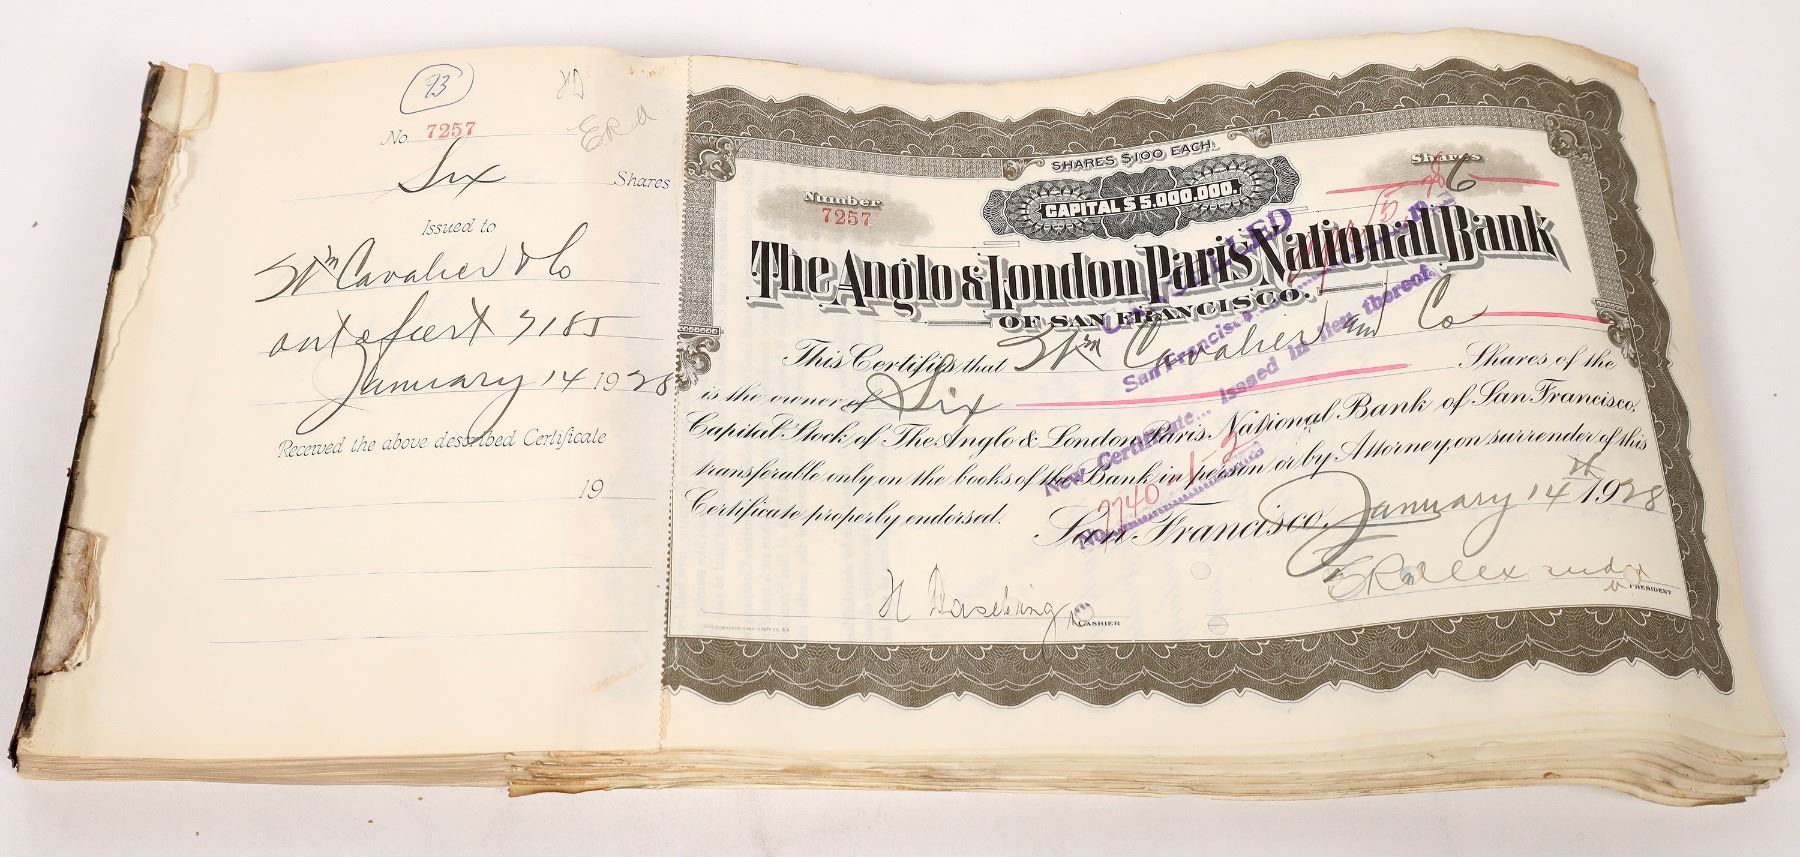 93
No 7257
Six Shares
Issued to
Wm Cavalier & Co
out of cert 7185
January 14 1928
Received the above described Certificate
19
ERA
SHARES $100 EACH.
CAPITAL $5,000,000.
Number
7257
Shares
6
The Anglo & London Paris National Bank
OF SAN FRANCISCO.
This Certifies that Wm Cavalier and Co
is the owner of Six Shares of the
Capital Stock of The Anglo & London Paris National Bank of San Francisco,
transferable only on the books of the Bank in person or by Attorney, on surrender of this
Certificate properly endorsed.
San Francisco, January 14 1928
CANCELLED
San Francisco
New Certificate issued in lieu thereof.
No.
H Daschring
CASHIER
E R Alexander
PRESIDENT